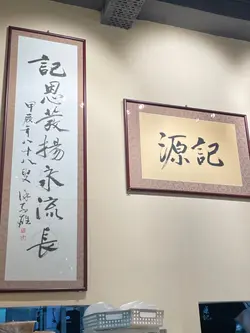 記恩發揚永流長
甲辰年八十八叟
源記